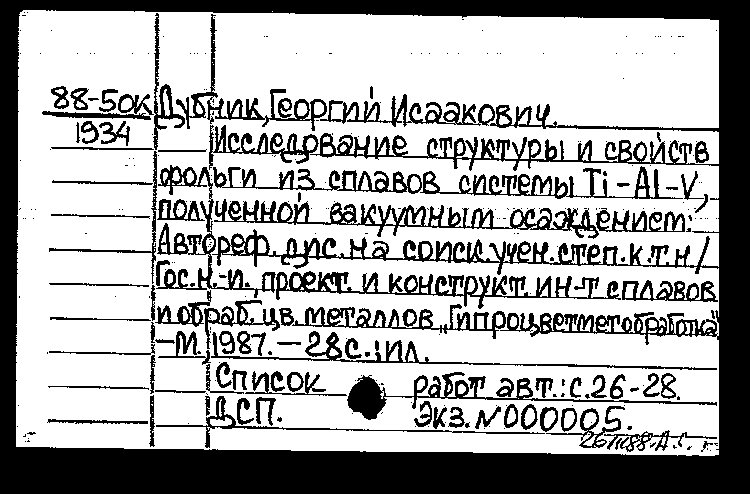 88-50к Дубник, Георгий Исаакович.
1934 Исследование структуры и свойств
фольги из сплавов системы Ti-Al-V,
полученной вакуумным осаждением:
Автореф. дис. на соиск. учен. степ. к.т.н/
Гос. н.-и., проект. и конструкт. ин-т сплавов
и обраб. цв. металлов „Гипроцветметобработка"
-М., 1987. - 28с.: ил.
Список работ авт.: с. 26-28.
ДСП. Экз. №000005.
26 III 88 А.С.